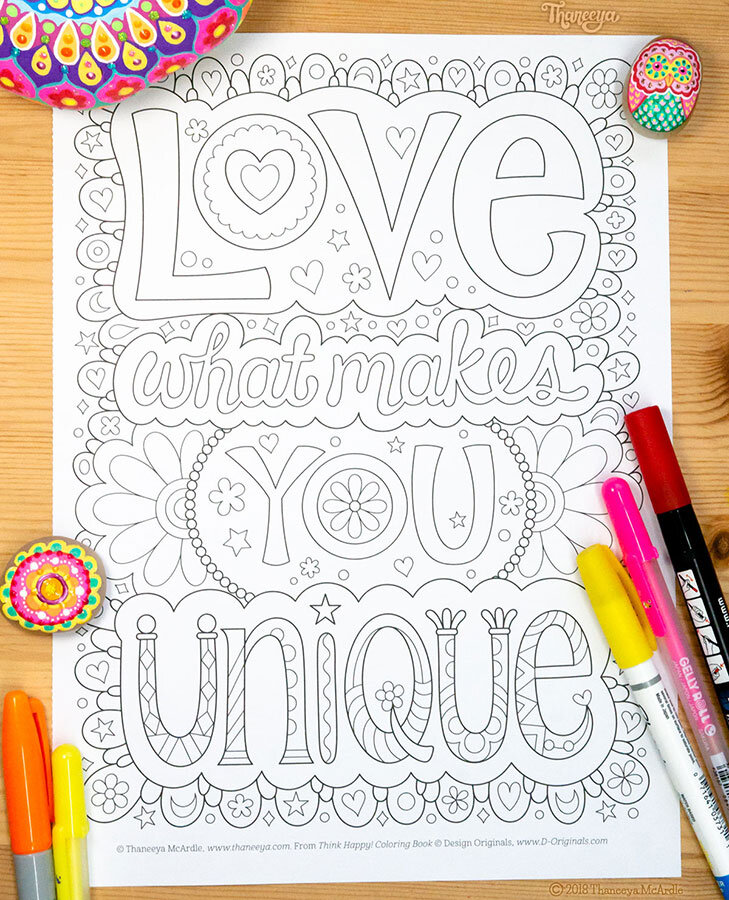 Thaneeya
Love
what makes
YOU
unique
© Thaneeya McArdle, www.thaneeya.com. From Think Happy! Coloring Book © Design Originals, www.D-Originals.com
GELLY ROLL
© 2018 Thaneeya McArdle